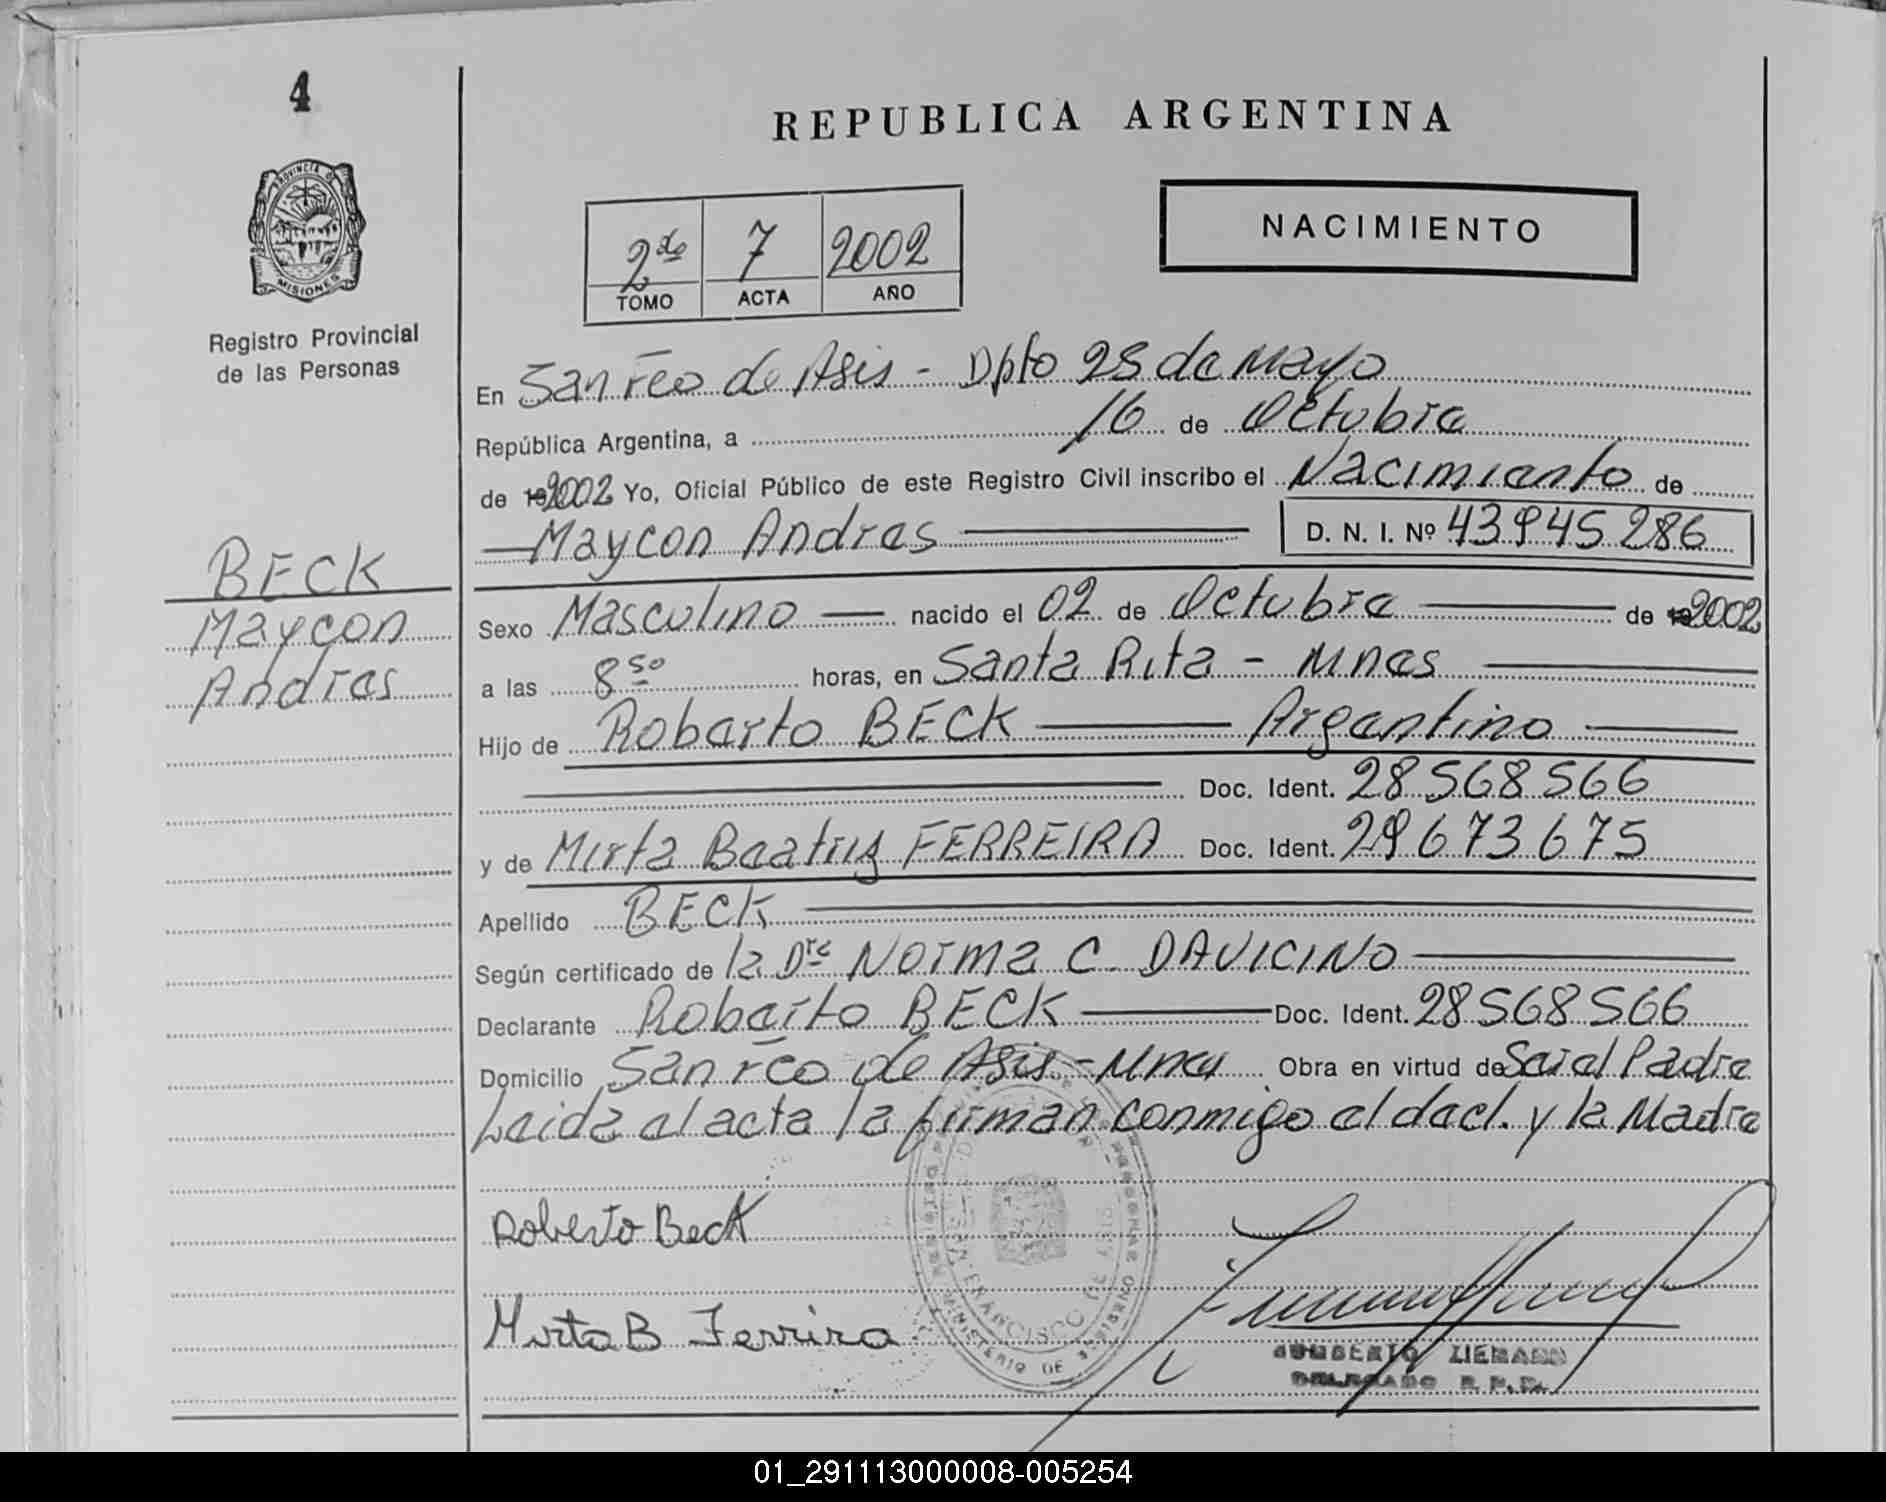 4
REPUBLICA ARGENTINA
PROVINCIA DE
MISIONES
Registro Provincial
de las Personas
2do 7 2002
TOMO ACTA AÑO
NACIMIENTO
En San Fco de Asis - Dpto 25 de Mayo
República Argentina, a 16 de Octubre
de 2002 Yo, Oficial Público de este Registro Civil inscribo el Nacimiento de
Maycon Andres D. N. I. Nº 43945286
BECK
Maycon
Andres
Sexo Masculino nacido el 02 de Octubre de 2002
a las 8 50 horas, en Santa Rita - Mnes
Hijo de Roberto BECK Argentino
Doc. Ident. 28568566
y de Mirta Beatriz FERREIRA Doc. Ident. 29673675
Apellido BECK
Según certificado de la Dra Norma C. DAVICINO
Declarante Roberto BECK Doc. Ident. 28568566
Domicilio San Fco de Asis - Mnes Obra en virtud de Ser el Padre
Leida el acta la firman conmigo el decl. y la Madre
Roberto Beck
Mirta B Ferreira
SAN FRANCISCO DE ASIS
MINISTERIO DE GOBIERNO
DELEGADO R.P.P.
01_291113000008-005254